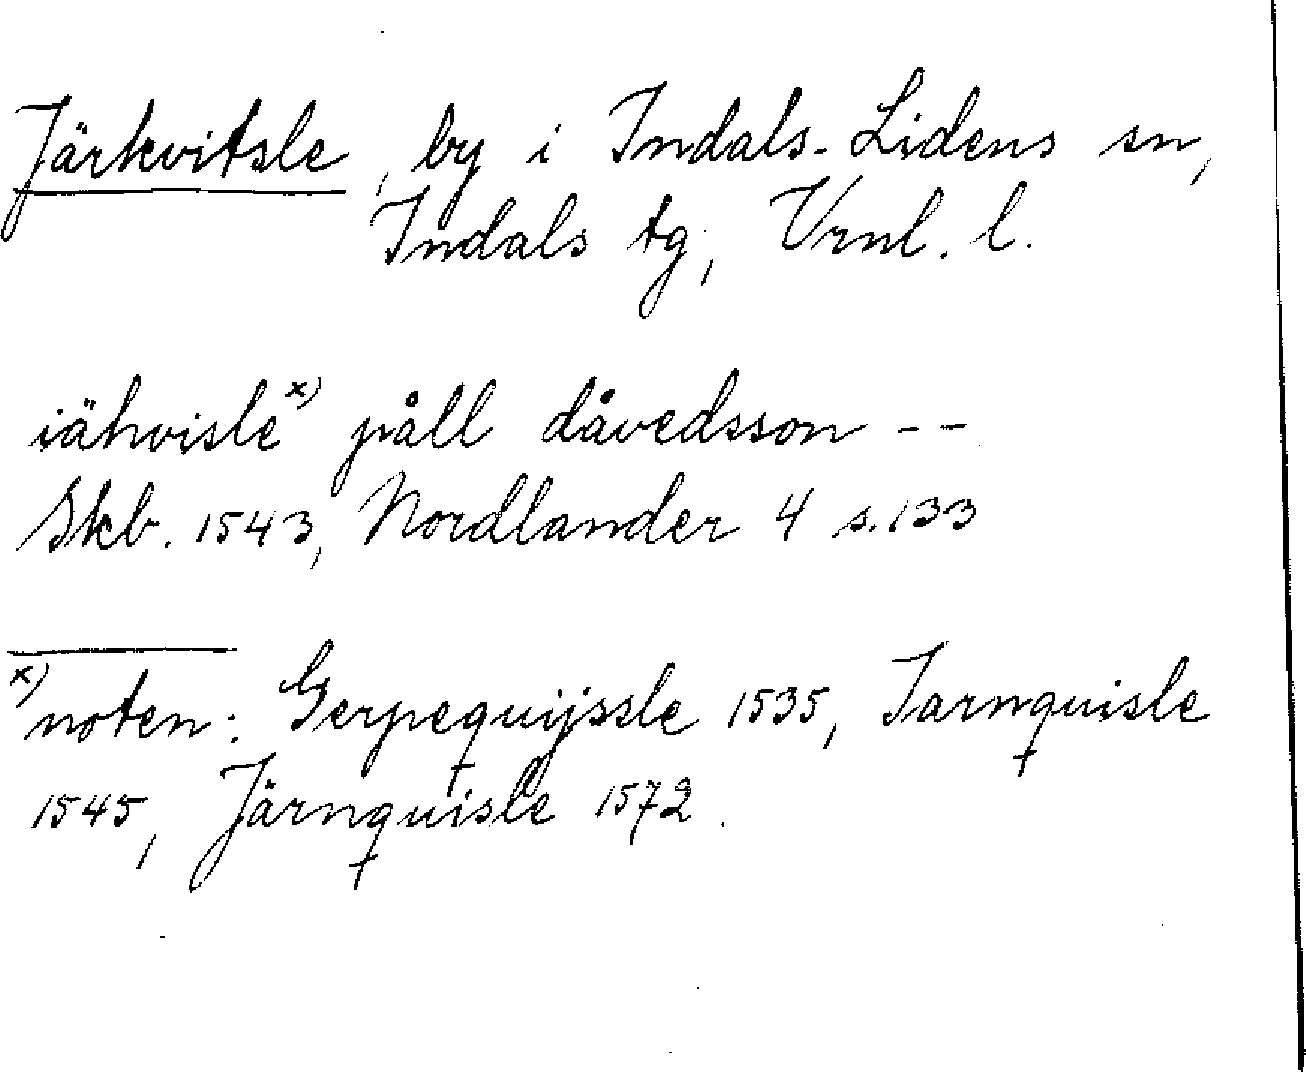 Järkvitsle, by i Indals-Lidens sn,
Indals tg, Vrnl. l.
iähvisle x) påll dåvedsson --
Skb. 1543, Nordlander 4 s. 133
x) noten: Gerpequijssle 1535, Jarnquisle
1545, Järnquisle 1572.